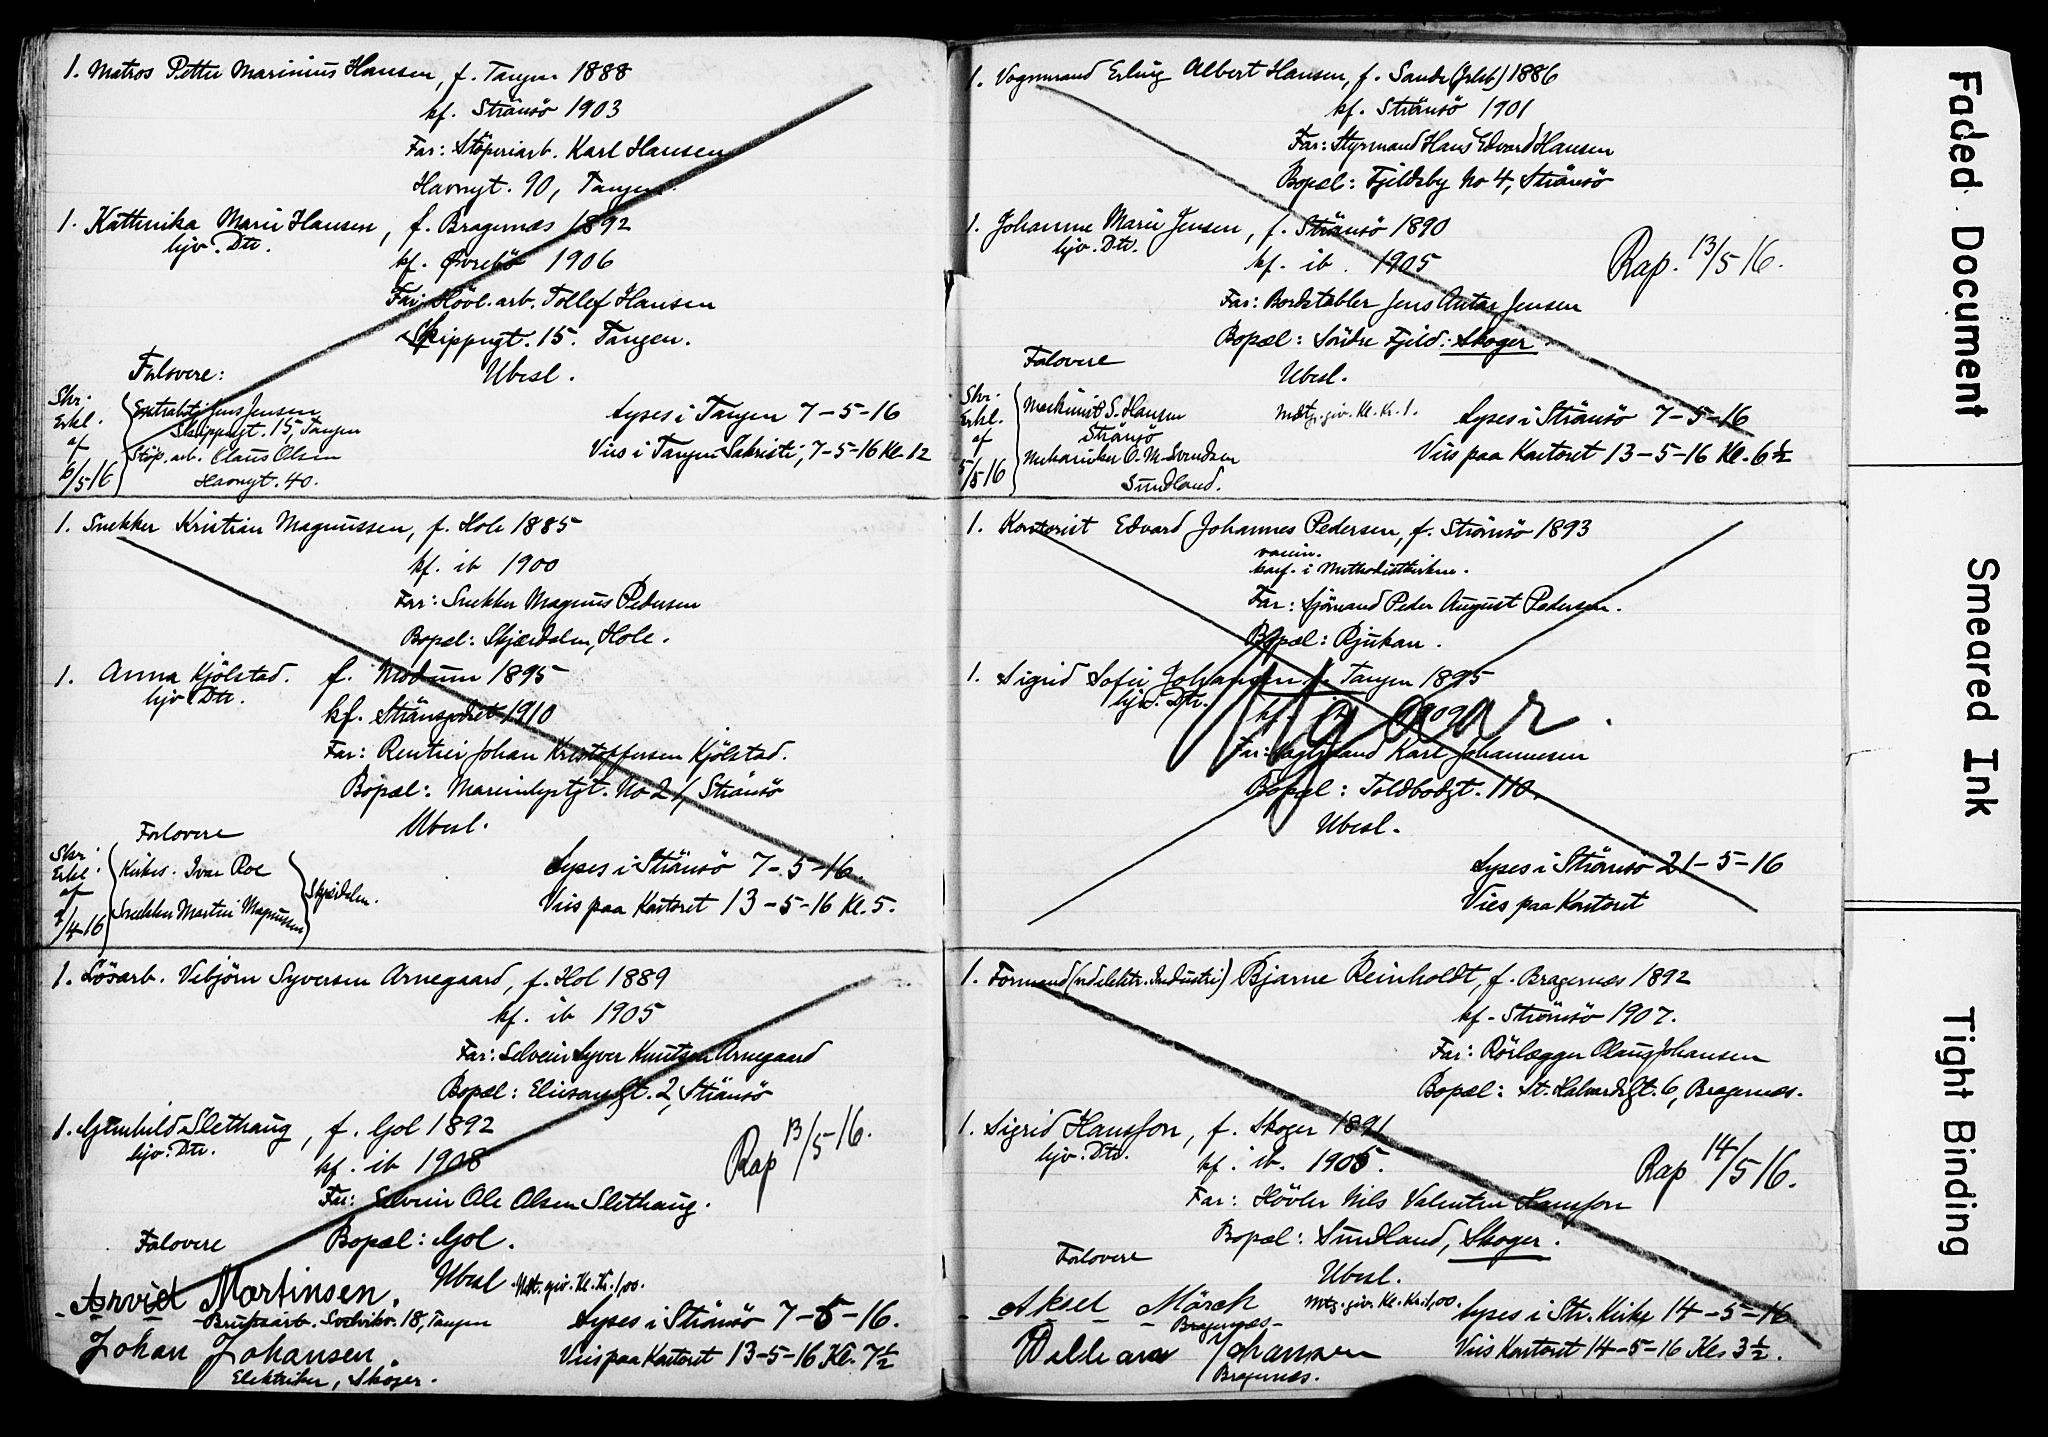 1. Matros Petter Marinius Hansen, f. Tangen 1888
kf. Strömsö 1903
Far: Stöperiarb. Karl Hansen
Havnegt. 90, Tangen.
1. Kathinika Marie Hansen, f. Bragernæs 1892
hjv. Dtr.
kf. Øvrebö 1906
Far: Hövl.arb. Tollef Hansen
Skippergt. 15. Tangen.
Forlovere:
Ubesl.
Skr. Erkl. af 6/5-16
Jens Jensen
Skippergt. 15, Tangen
Stöp.arb. Claus Olsen
Havnegt. 40.
Lyses i Tangen 7-5-16
Vies i Tangen Sakristi, 7-5-16 Kl. 12
1. Snekker Kristian Magnussen, f. Hole 1885
kf. ib 1900
Far: Snekker Magnus Pedersen
Bopæl: Skjærdalen, Hole.
1. Anna Kjölstad. f. Modum 1895
hjv. Dtr.
kf. Strömsgodset 1910
Far: Rentier Johan Kristoffersen Kjölstad.
Bopæl: Marienlystgt. No 21, Strömsö
Forlovere
Ubesl.
Skr. Erkl. af /4-16
Kirkes. Ivar Roe
Snekker Martin Magnussen
Skjærdalen.
Lyses i Strömsö 7-5-16.
Vies paa Kontoret 13-5-16 Kl. 5.
1. Lösarb. Vebjörn Syversen Arnegaard, f. Hol 1889
kf. ib 1905
Far: Selveier Syver Knutsen Arnegaard
Bopæl: 2, Strömsö
1. Gunhild Slethaug, f. Gol 1892
hjv. Dtr.
kf. ib 1908
Rap 13/5 16.
Far: Selveier Ole Olsen Slethaug.
Forlovere
Bopæl: Gol.
Arvid Martinsen.
Ubesl. Mtt. giv. Kl. Kr. 1,00.
Bruksarb. 18, Tangen
Lyses i Strömsö 7-5-16.
Johan Johansen
Vies paa Kontoret 13-5-16 Kl. 7½
Elektriker, Skoger.
1. Vognmand Erling Albert Hansen, f. Sande (Jrlsb.) 1886
kf. Strömsö 1901
Far: Styrmand Hans Edvard Hansen
Bopæl: Fjeldsby No 4, Strömsö
1. Johanne Marie Jensen, f. Strömsö 1890
hjv. Dtr.
kf. ib. 1905
Rap. 13/5 16.
Far: Bordstabler Jens Anton Jensen
Bopæl: Söndre Fjeld: Skoger.
Forlovere
Ubesl.
Skr. Erkl. af 5/5 16
Maskinist S. Hansen
Strömsö
Mekaniker O. M. Svendsen
Sundland.
Mtg. giv. Kl. Kr. 1.
Lyses i Strömsö 7-5-16
Vies paa Kontoret 13-5-16 Kl. 6½
1. Kontorist Edvard Johannes Pedersen, f. Strömsö 1893
vaccin.
konf. i Methodistkirken.
Far: Sjömand Peder August Pedersen.
Bopæl: Rjukan.
1. Sigrid Sofie Johansen f. Tangen 1895
hjv. Dtr.
kf. ib 1909
Hagar.
Far: Karl Johannesen
Bopæl: Toldbodgt. 110.
Ubesl.
Lyses i Strömsö 21-5-16
Vies paa Kontoret
1. Formand (ved elektr. Industri) Bjarne Reinholdt, f. Bragernæs 1892
kf. Strömsö 1907.
Far: Rörlægger Olaus Johansen
Bopæl: St. Halvardsgt. 6, Bragernæs.
1. Sigrid Hansson, f. Skoger 1891
hjv. Dtr.
kf. ib. 1905.
Rap 14/5 16.
Far: Hövler Nils Valentin Hansson
Bopæl: Sundland, Skoger.
Forlovere
Ubesl.
Aksel Mörch
Mtg. giv. Kl. Kr. 1,00.
Bragernæs
Lyses i Str. Kirke 14-5-16
Valdemar Johansen
Vies Kontoret 14-5-16 Kl. 3½.
Bragernæs.
Faded Document
Smeared Ink
Tight Binding